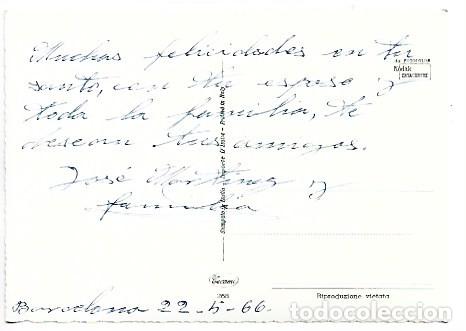 Muchas felicidades en tu
santo, con tu esposo y
toda la familia, te
desean tus amigos.
José Martínez y
familia
Barcelona 22-5-66
Riproduzione vietata
todocoleccion